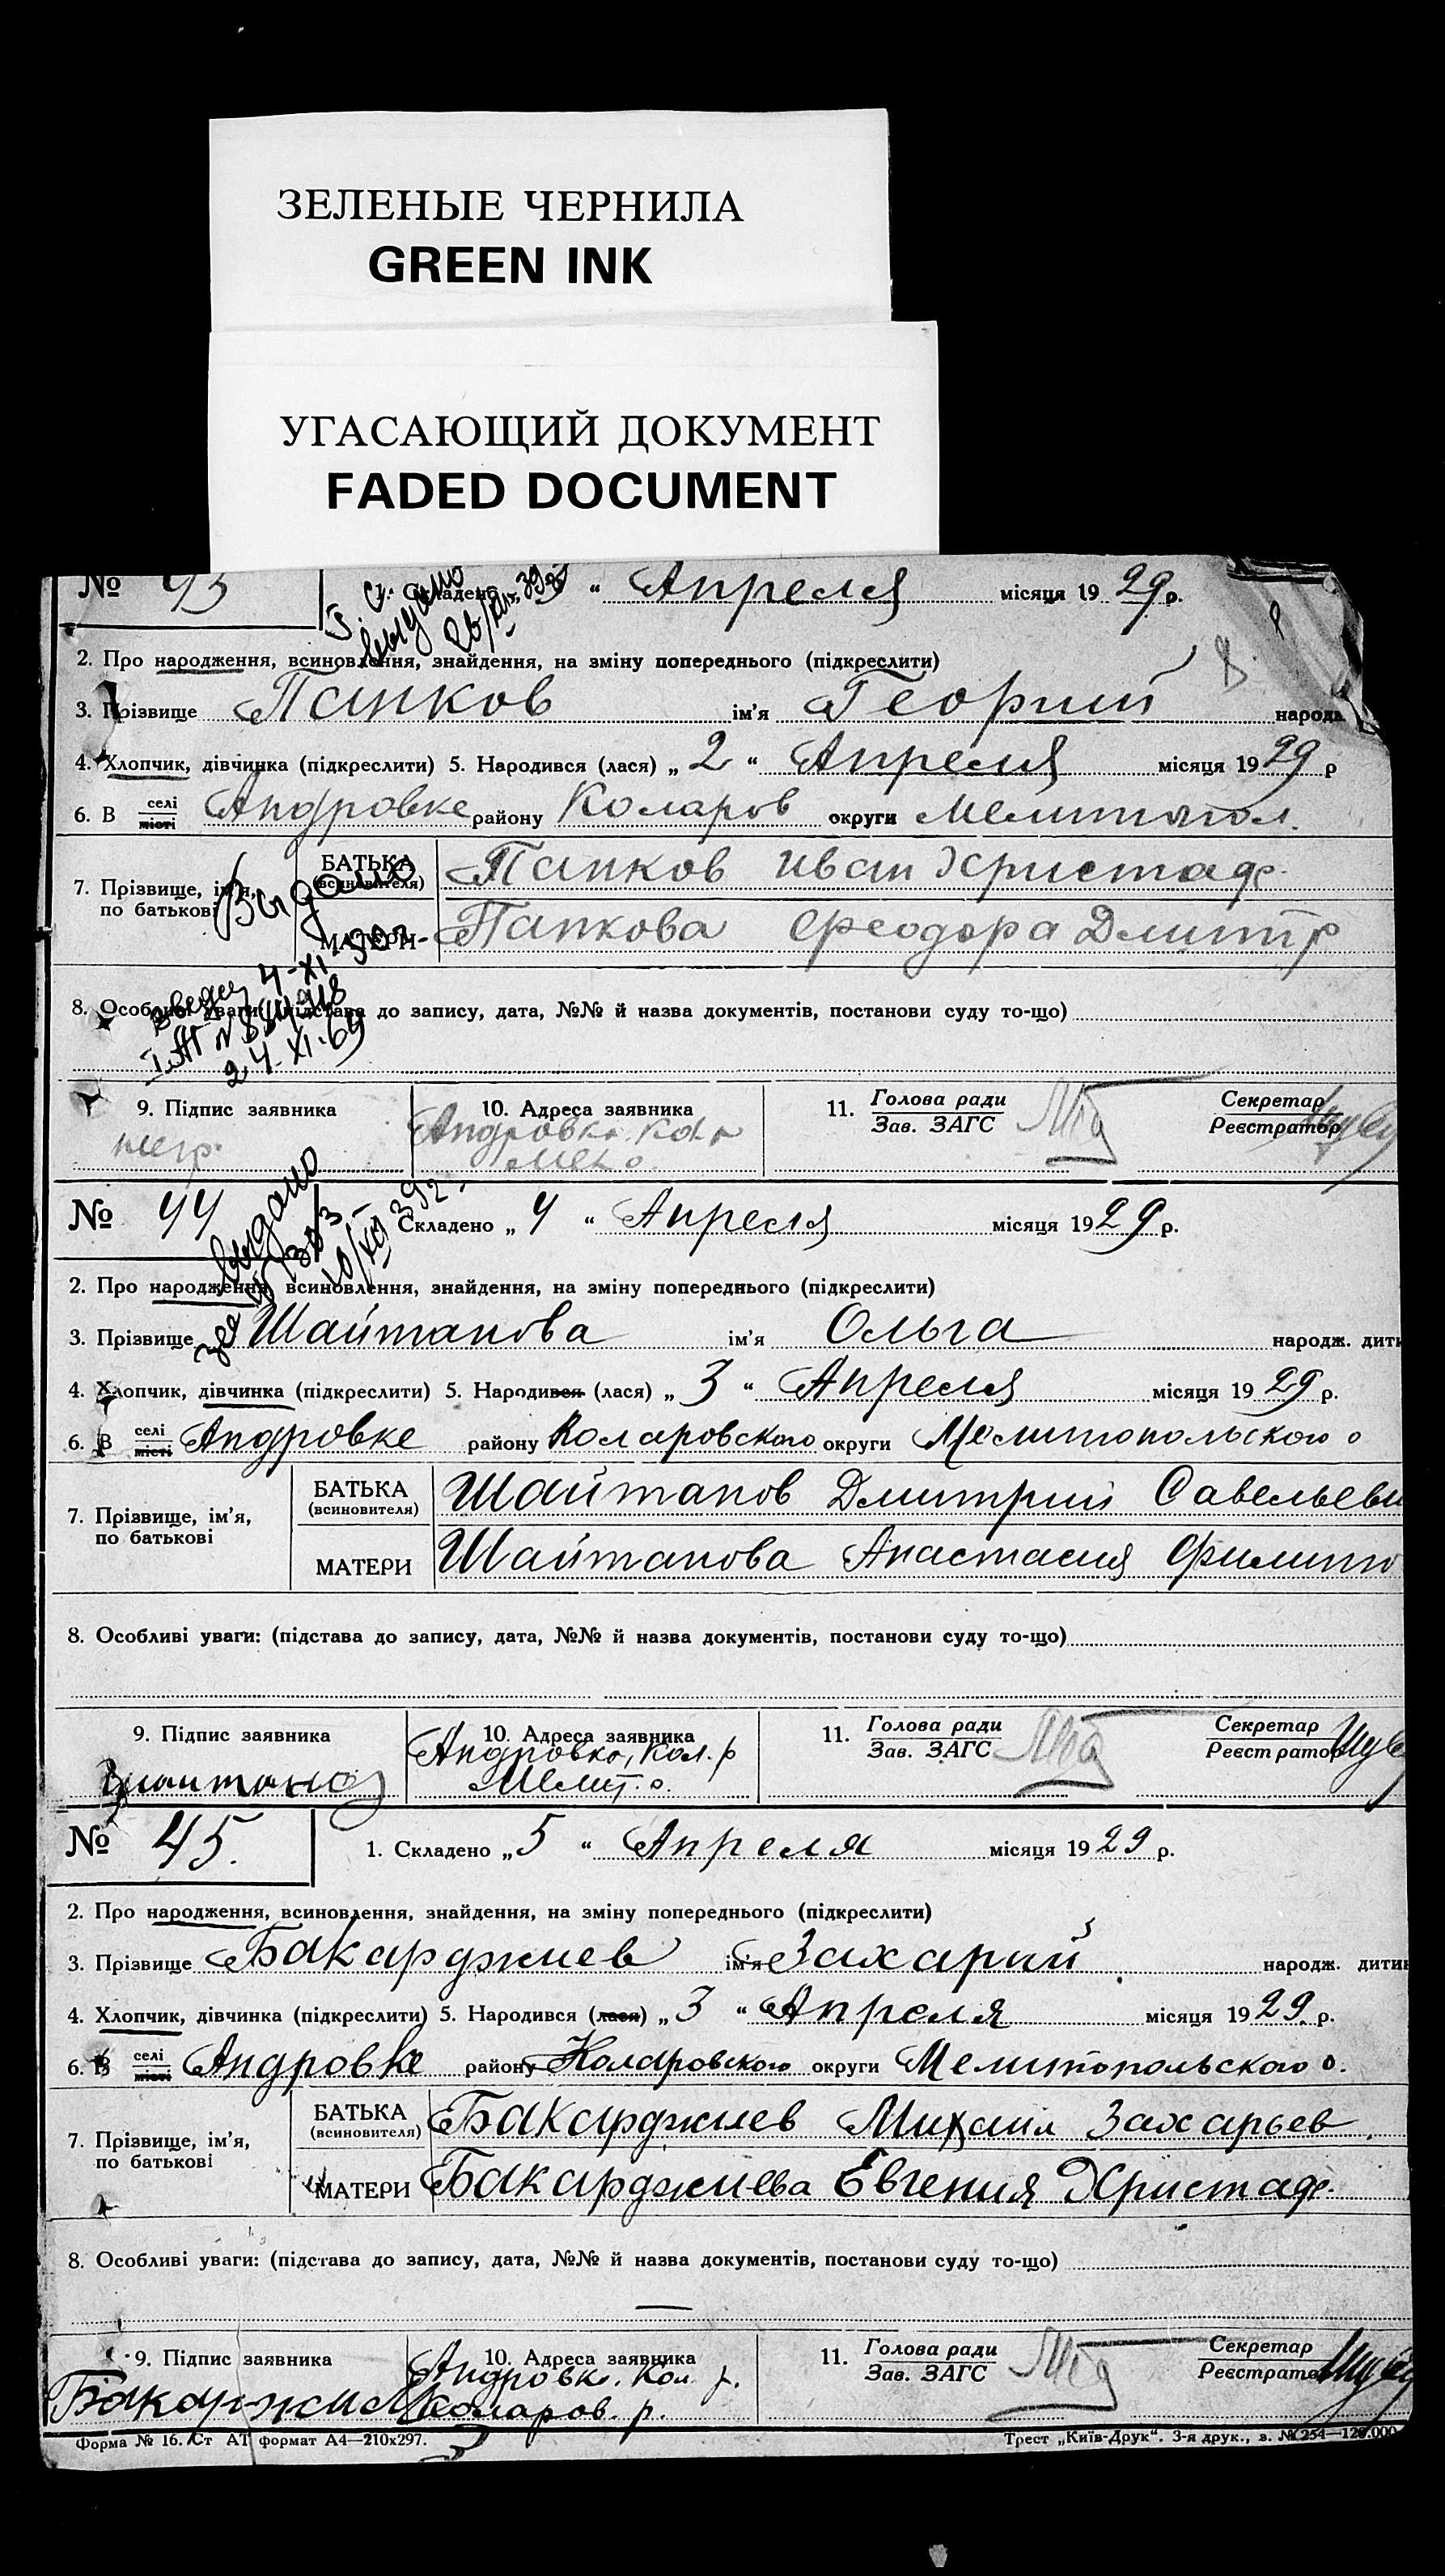 ЗЕЛЕНЫЕ ЧЕРНИЛА
GREEN INK
УГАСАЮЩИЙ ДОКУМЕНТ
FADED DOCUMENT
№ 43 1. Складено „ “ Апреля місяця 1929 р.
выдано
2. Про народження, всиновлення, знайдення, на зміну попереднього (підкреслити)
3. Прізвище Папков ім'я Георгий народж
4. Хлопчик, дівчинка (підкреслити) 5. Народився (лася) „ 2 “ Апреля місяця 1929 р
6. В селі місті Андровке району Коларов округи Мелитопол.
7. Прізвище, ім'я, по батькові БАТЬКА (всиновителя) Папков Иван Христаф.
Выдано
МАТЕРИ Папкова Феодора Дмитр
4-XI
8. Особливі уваги: (підстава до запису, дата, №№ й назва документів, постанови суду то-що)
24-XI-69
9. Підпис заявника негр. 10. Адреса заявника Андровка. Кол. р Мел о. 11. Голова ради Зав. ЗАГС Секретар Реєстратор
№ 44 Складено „ 4 “ Апреля місяця 1929 р.
выдано
2. Про народження, всиновлення, знайдення, на зміну попереднього (підкреслити)
3. Прізвище Шайтанова ім'я Ольга народж. дити
4. Хлопчик, дівчинка (підкреслити) 5. Народився (лася) „ 3 “ Апреля місяця 1929 р.
6. В селі місті Андровке району Коларовского округи Мелитопольского о
7. Прізвище, ім'я, по батькові БАТЬКА (всиновителя) Шайтанов Дмитрий Савельеви
МАТЕРИ Шайтанова Анастасия Филиппо
8. Особливі уваги: (підстава до запису, дата, №№ й назва документів, постанови суду то-що)
9. Підпис заявника Шайтанов 10. Адреса заявника Андровка, Кол. р Мелит. о. 11. Голова ради Зав. ЗАГС Секретар Реєстратор
№ 45. 1. Складено „ 5 “ Апреля місяця 1929 р.
2. Про народження, всиновлення, знайдення, на зміну попереднього (підкреслити)
3. Прізвище Бакарджиев ім'я Захарий народж. дитин
4. Хлопчик, дівчинка (підкреслити) 5. Народився (лася) „ 3 “ Апреля місяця 1929. р.
6. В селі місті Андровке району Коларовского округи Мелитопольского о.
7. Прізвище, ім'я, по батькові БАТЬКА (всиновителя) Бакарджиев Михаил Захарьев
МАТЕРИ Бакарджиева Евгения Христаф.
8. Особливі уваги: (підстава до запису, дата, №№ й назва документів, постанови суду то-що)
9. Підпис заявника 10. Адреса заявника Андровк. Кол. р. Коларов. р. 11. Голова ради Зав. ЗАГС Секретар Реєстратор
Форма № 16. Ст АТ формат А4—210х297. Трест „Київ-Друк“. 3-я друк., з. № 254—120.000